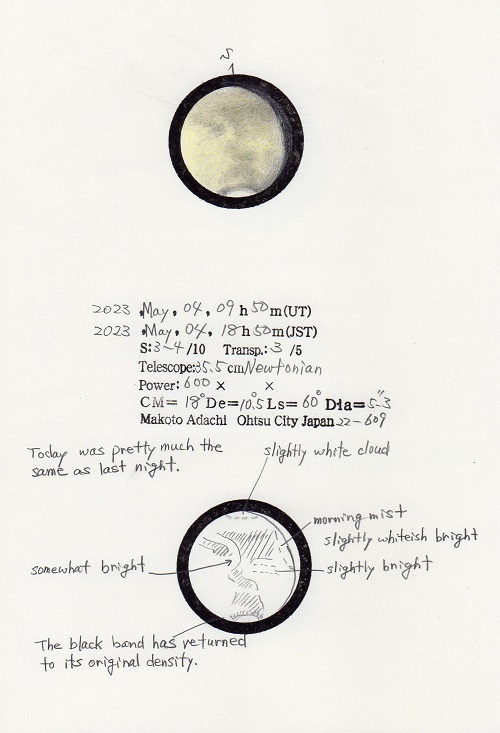 S
2023 May, 04, 09 h 50 m (UT)
2023 May, 04, 18 h 50 m (JST)
S: 3~4 /10 Transp.: 3 /5
Telescope: 35.5 cm Newtonian
Power: 600 × ×
CM= 18° De= 10.5° Ls= 60° Dia= 5."3
Makoto Adachi Ohtsu City Japan 22-609
Today was pretty much the
same as last night.
slightly white cloud
morning mist
slightly whiteish bright
somewhat bright
slightly bright
The black band has returned
to its original density.